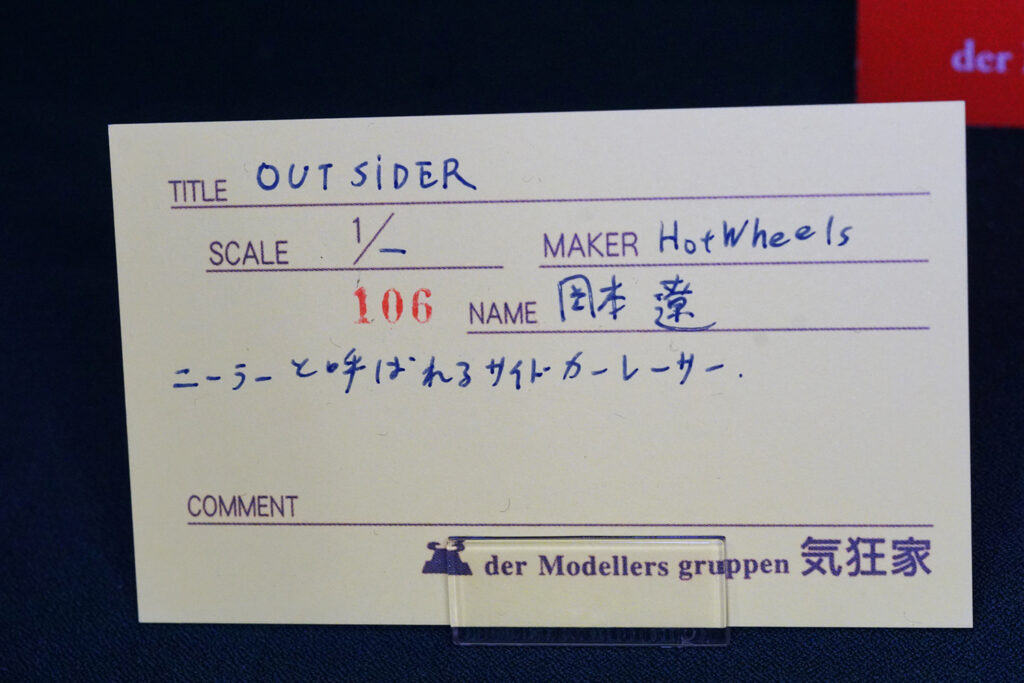 der
TITLE OUTSIDER
SCALE 1/—
MAKER HotWheels
106
NAME 岡本 遼
ニーラーと呼ばれるサイドカーレーサー.
COMMENT
der Modellers gruppen 気狂家